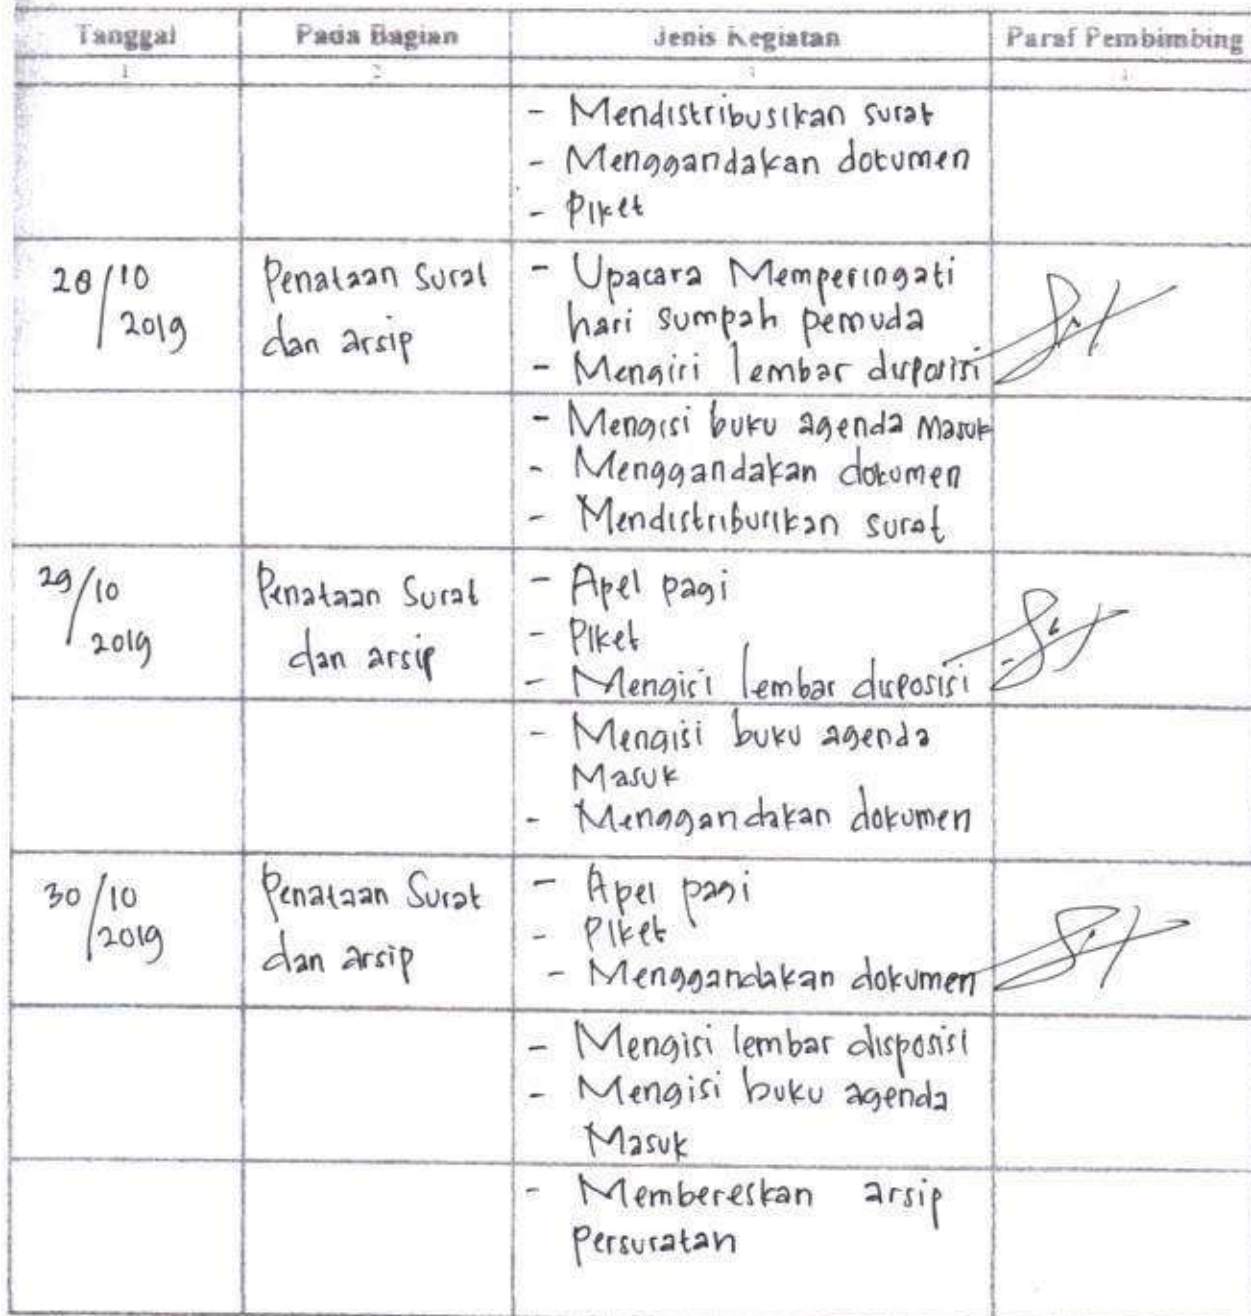 Tanggal Pada Bagian Jenis Kegiatan Paraf Pembimbing
1 2 3 4
- Mendistribusikan surat
- Menggandakan dokumen
- Piket
28/10 2019 Penataan Surat dan arsip
- Upacara Memperingati
hari sumpah pemuda
- Mengisi lembar disposisi
- Mengisi buku agenda Masuk
- Menggandakan dokumen
- Mendistribusikan surat
29/10 2019 Penataan Surat dan arsip
- Apel pagi
- Piket
- Mengisi lembar disposisi
- Mengisi buku agenda
Masuk
- Menggandakan dokumen
30/10 2019 Penataan Surat dan arsip
- Apel pagi
- Piket
- Menggandakan dokumen
- Mengisi lembar disposisi
- Mengisi buku agenda
Masuk
- Membereskan arsip
Persuratan